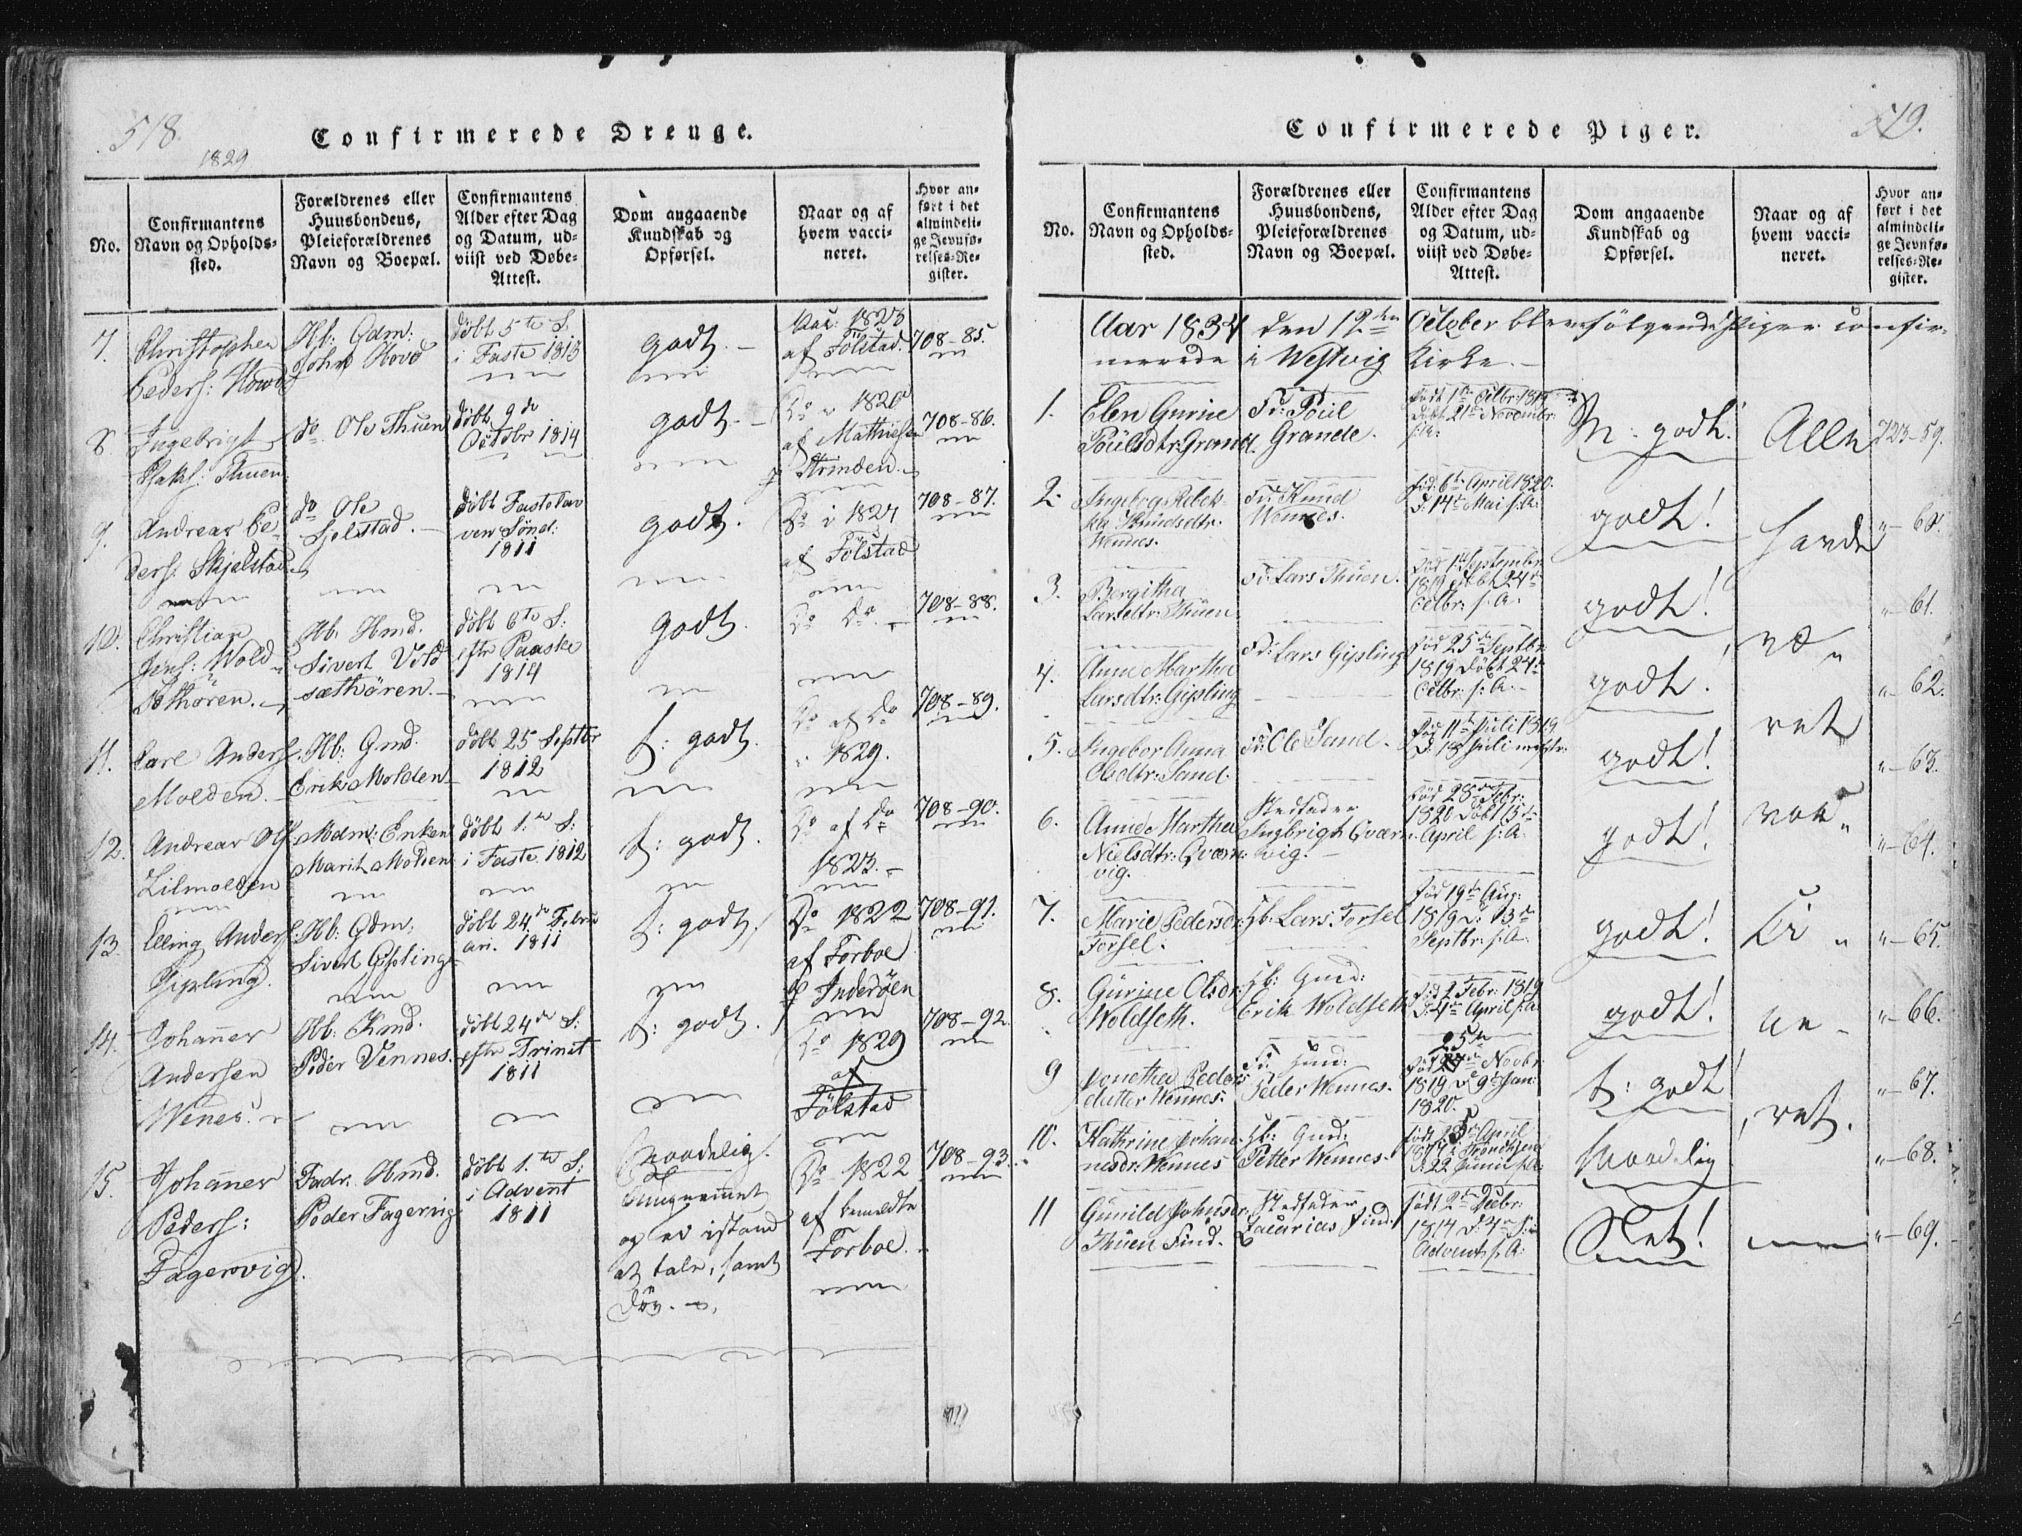 518.
1829
Confirmerede Drenge.
No.
Confirmantens
Navn og Opholds-
sted.
Forældrenes eller
Huusbondens,
Pleieforældrenes
Navn og Boepæl.
Confirmantens
Alder efter Dag
og Datum, ud-
viist ved Døbe-
Attest.
Dom angaaende
Kundskab og
Opførsel.
Naar og af
hvem vacci-
neret.
Hvor an-
ført i det
almindeli-
ge Jevnfø-
relses-Re-
gister.
7.
Christopher
Peders:
Hb: Gdm:
John Hovd
døbt 5te S:
i Faste 1813
godt.
Aar: 1823
af Følstad.
708-85.
8.
Ingebrigt
Thuen
do Ole Thuen
døbt 9de
Octobr 1814
godt.
Do 1820
af Mathiesen
p Strinden.
708-86.
9.
Andreas Pe-
ders: Skjelstad
do Ole
Sjelstad.
døbt Fastelav
ven Sønd:
1811
godt.
Do i 1827
af Følstad
708-87.
10.
Christian
Jens: Wold-
sæthøren.
Hb. Hmd.
Sivert Vold
sæthøren.
døbt 6te S:
eftr Paaske
1814
godt.
Do Do.
708-88.
11.
Carl Anders:
Molden.
Hb: Gmd.
Erik Molden
døbt 25 Septbr
1812
t: godt.
Do af Do
1829.
708-89.
12.
Andreas Ols:
Lilmolden
Mdm: Enken
Marit Molden
døbt 1.te S:
i Faste 1812
t: godt.
Do af Do
1823.
708-90.
13.
Elling Anders:
Gipling.
Hb: Gdm:
Sivert Gipling
døbt 24de Febru
ari. 1811
t: godt,
Do 1822
af Forboe
p Inderøen
708-91.
14.
Johaner
Andersen
Wenes.
Hb: Kmd.
Peder Vennes.
døbt 24de S:
eftr Trinit
1811
t: godt.
Do 1829
af
Følstad
708-92.
15.
Johaner
Peders:
Fagervig.
Fadr. Hmd.
Peder Fagervig
døbt 1.te S:
i Advent
1811
Maadelig.
og ei istand
at tale, samt
døv.
Do 1822
af bemeldte
Forboe.
708-93.
519.
Confirmerede Piger.
No.
Confirmantens
Navn og Opholds-
sted.
Forældrenes eller
Huusbondens,
Pleieforældrenes
Navn og Boepæl.
Confirmantens
Alder efter Dag
og Datum, ud-
viist ved Døbe-
Attest.
Dom angaaende
Kundskab og
Opførsel.
Naar og af
hvem vacci-
neret.
Hvor an-
ført i det
almindeli-
ge Jevnfø-
relses-Re-
gister.
Aar 1834 den 12te October bleve følgende Piger confir-
merede i Westvig Kirke.
1.
Elen Gurine
Poulsdtr: Grande.
Fd: Poul
Grande.
Født 1te Octbr: 1819
Døbt 21de Novembr:
s: A:
M: godt!
Alle
723-59.
2.
Ingeborg Rebek-
ka Knudsdtr.
Wennes.
Fd: Knud
Wennes.
Fød: 6te April 1820.
D: 14de Mai s: A:
godt!
havde
"-60.
3.
Bergitha
Larsdtr: Thuen.
Fd: Lars Thuen.
Septembr
1819 døbt 24de
Octbr: s: A.
godt!
"-61.
4.
Anne Martha
Larsdtr: Gipling
Fd: Lars Gipling
Fød 25de Septbr
1819 Døbt 24de
Octbr: s: A.
godt!
væ"
"-62.
5.
Ingebor Anna
Olsdtr: Sand.
Fd: Ole Sand.
Fød 11te Juli 1819
D: 18 Juli
godt!
ret
"-63.
6.
Anne Martha
Nielsdtr: Qværn-
vig.
Stedfader
Ingbrigt Qværn-
vig.
Fød 28de Febr:
1820 Døbt 13de
April s: A.
godt!
vac"
"-64.
7.
Marie Pedersdr:
Forsel.
Hb: Lars Forsel
Fød 19de Aug:
1819 d: 13de
Septbr: s: A.
godt!
ci"
"-65.
8.
Gurine Olsdr:
Woldseth.
Hb: Gmd:
Erik Woldseth
Fød 2 Febr: 1819
D: 4de April s: A
godt!
ne-
"-66.
9
Jonetha Peders
datter Wennes.
Fd: Hmd:
Peder Wennes.
25de
Novbr
1819 d 9de Jan:
1820.
t: godt!
ret.
"-67.
10.
Kathrine Johan-
nesdr: Wennes
Hb: Gmd:
Petter Wennes.
April
D: 22 Junii s: A:
Maadelig
"-68.
11
Gunild Johnsdr.
Thuen Find.
Stedfader
Zacarias Find.
født 2de Decbr:
1814 d: 4de S: i
Advent s: A:
Slet!
"-69.